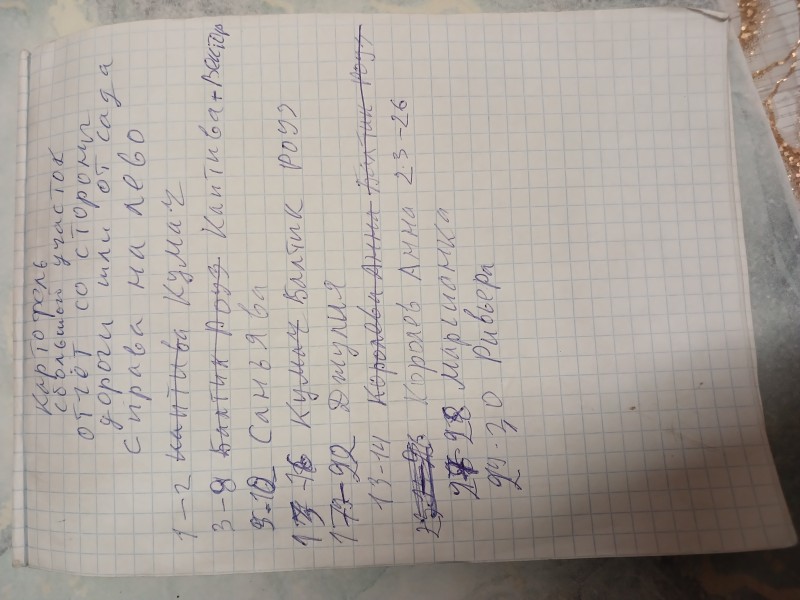 картофель
сбольшой участок
отчёт со стороны
дороги шли от сада
справа на лево
1-2 Каптива Кумач
3-8 Балтик Роуз Каптива+Вектор
9-12 Саньява
13-16 Кумач Балтик Роуз
17-22 Джулия
13-14 Королева Анна Балтик Роуз
Королев Анна 23-26
27-28 Марсианка
29-30 Ривьера